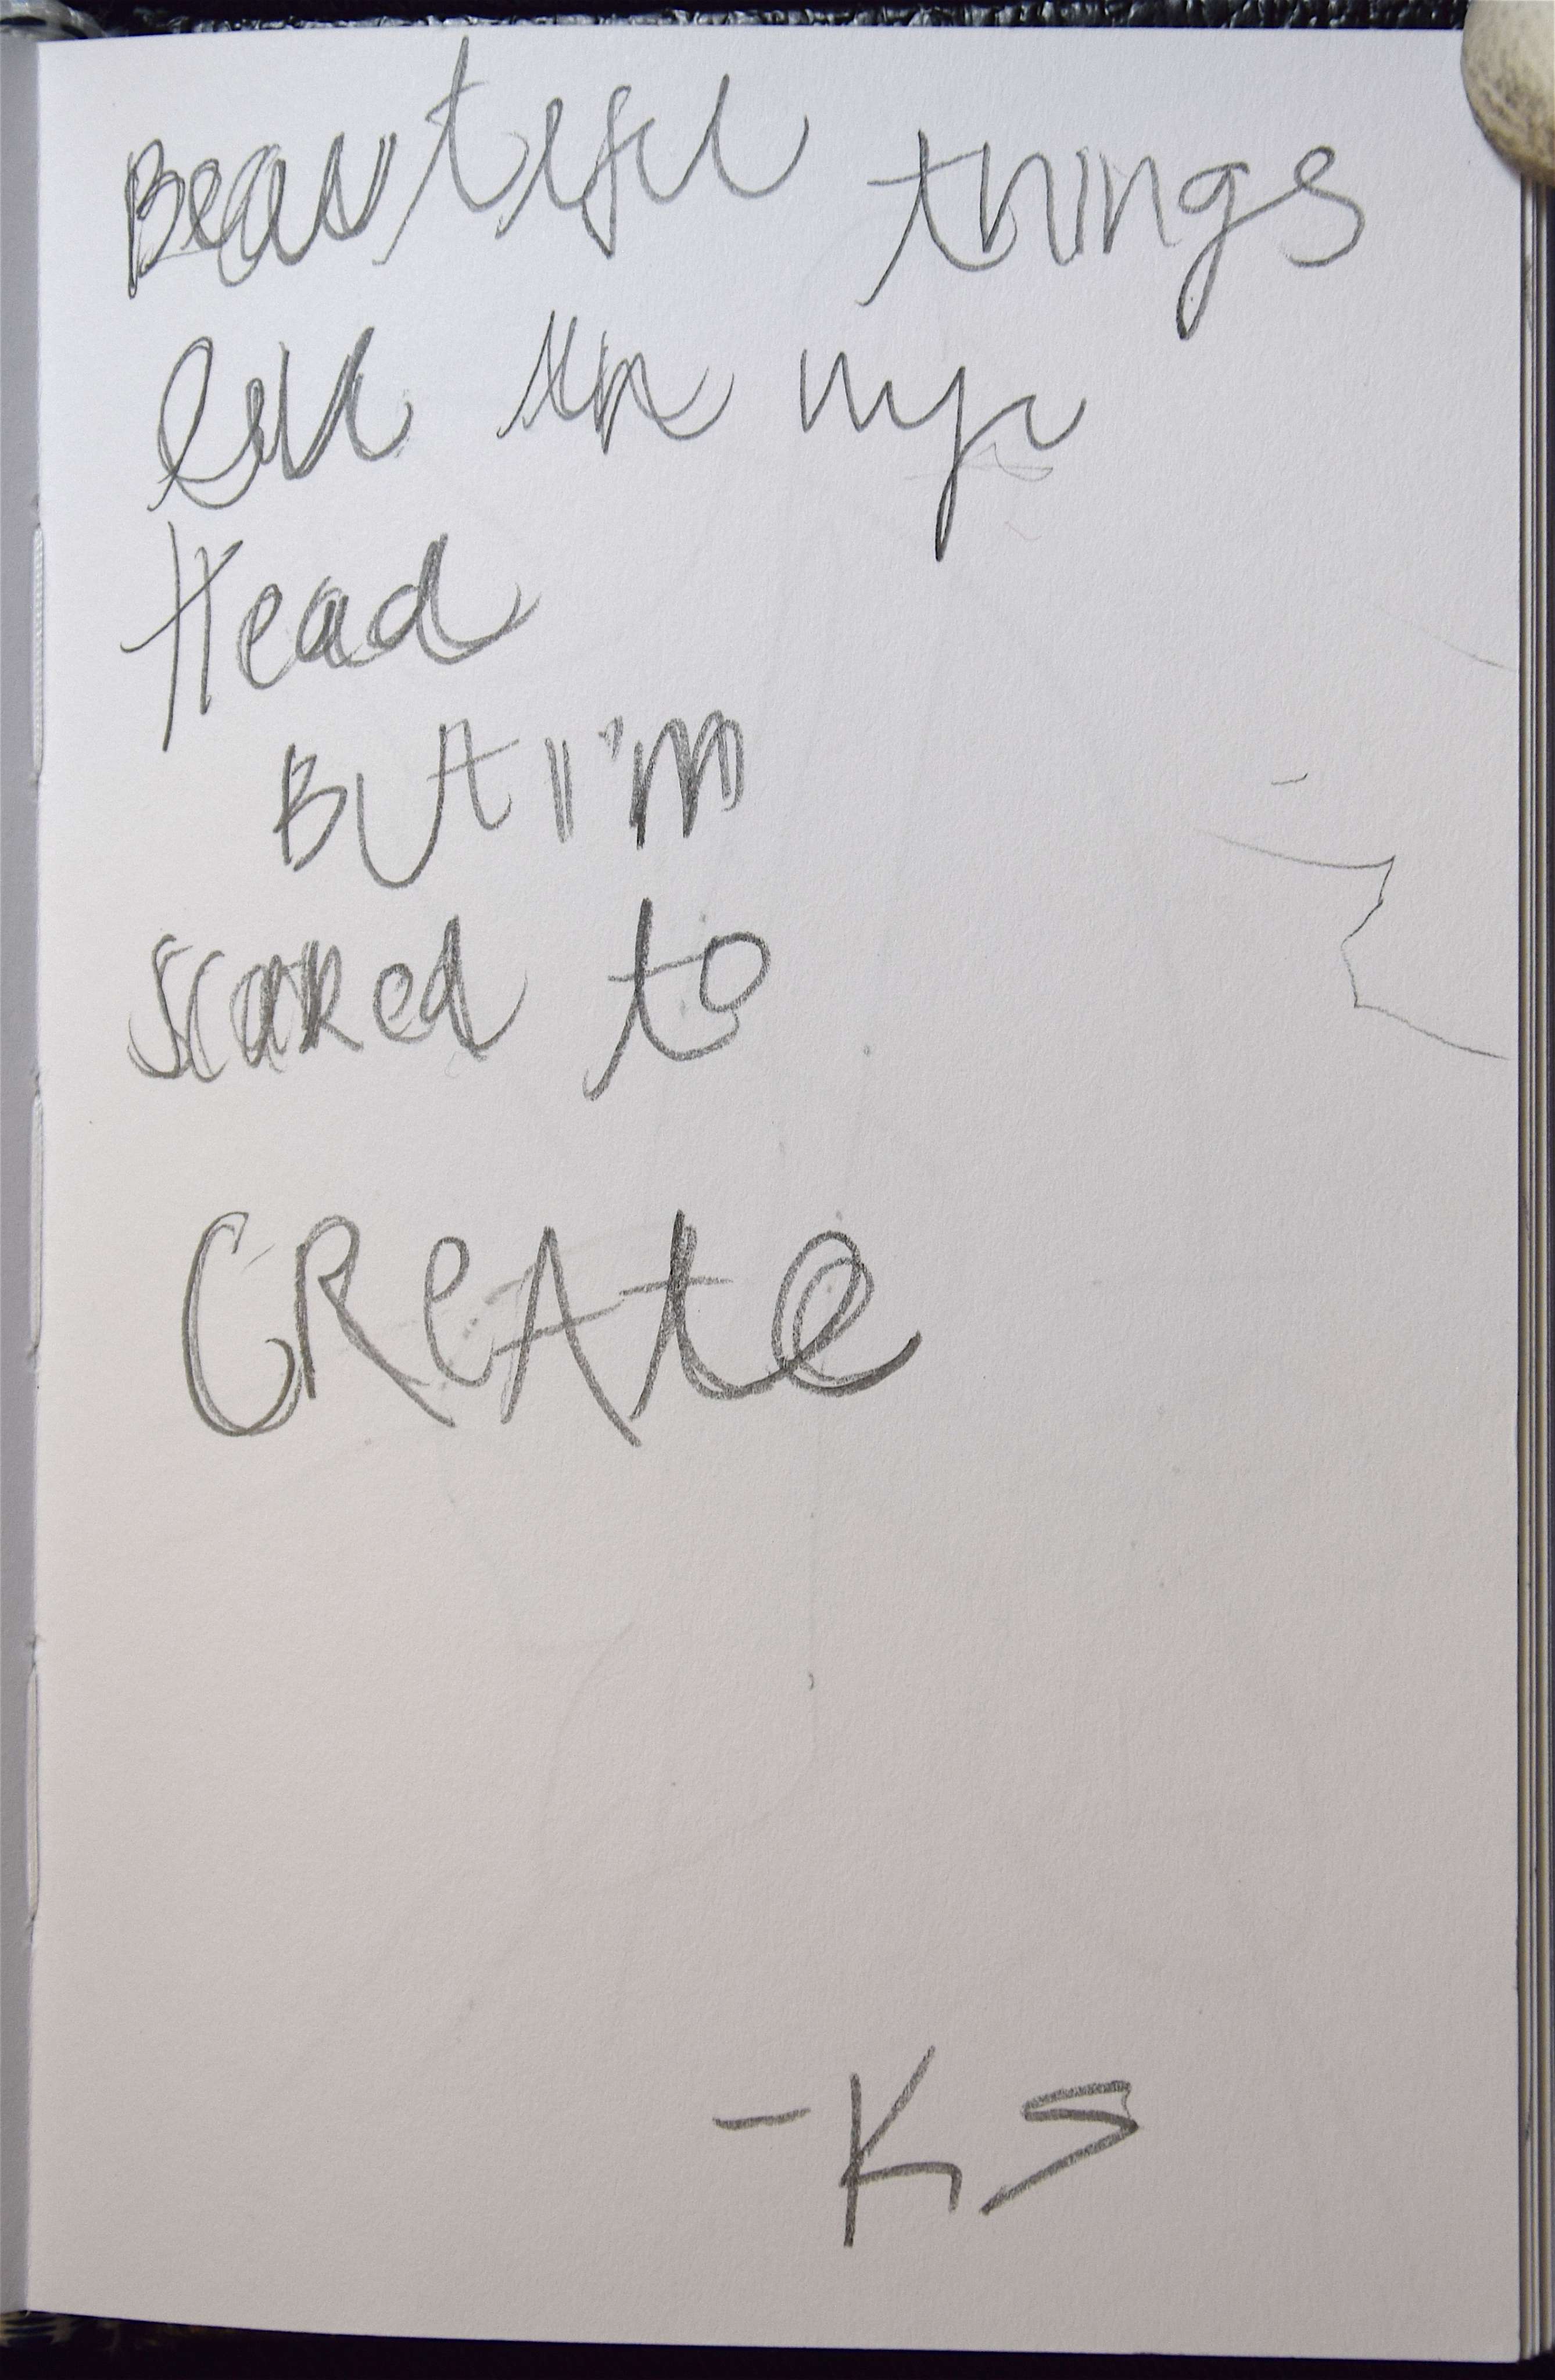 Beautiful things
in my
Head
But I'm
scared to
CReAte
- KS